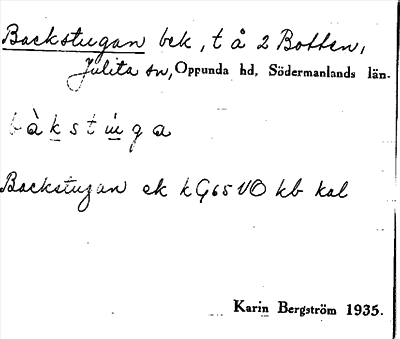 Backstugan bek, t å 2 Botten,
Julita sn, Oppunda hd, Södermanlands län.
bàkstùga
Backstugan ek kG65VO kb kal
Karin Bergström 1935.